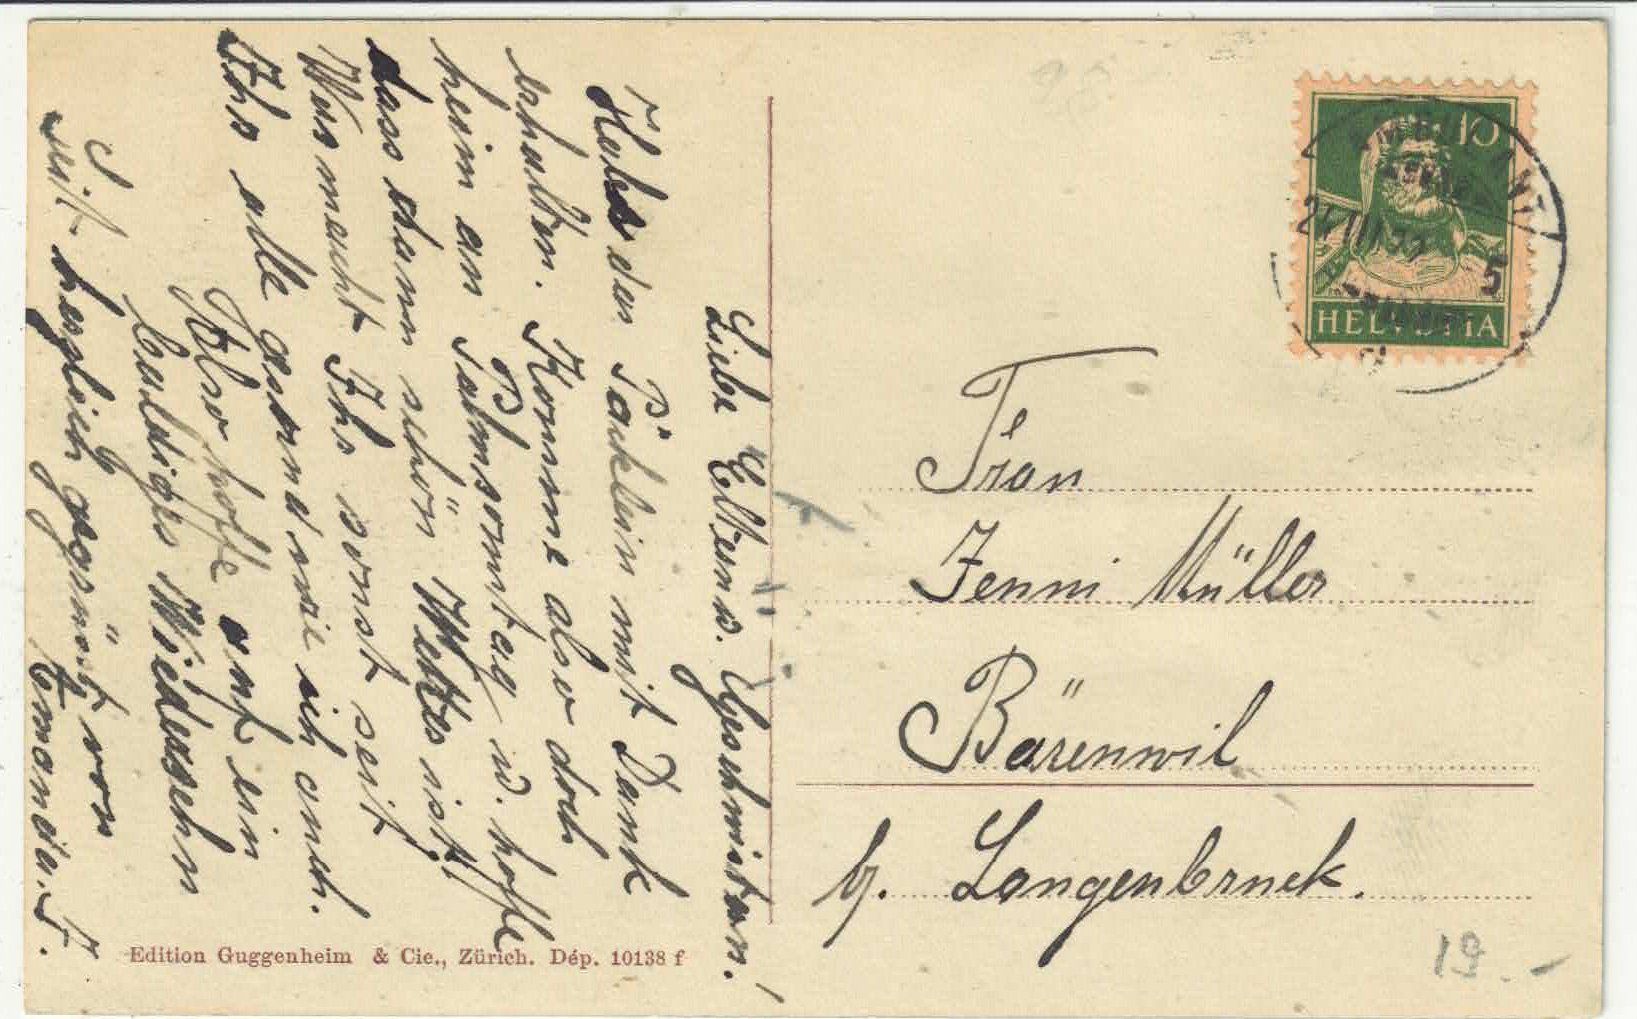 Liebe Eltern u. Geschwistern!
Habe das Päcklein mit Dank
erhalten. Komme also doch
heim an Palmsonntag u. hoffe
dass dann schön Wetter ist.
Was macht Ihr sonst seit
Ihr alle gesund wie ich auch.
Also hoffe auf ein
baldiges Wiedersehn
Seit herzlich gegrüsst von
Frau
Jenni Müller
Bärenwil
b. Langenbruck.
10
HELVETIA
5
Edition Guggenheim & Cie., Zürich. Dép. 10138 f
19.-